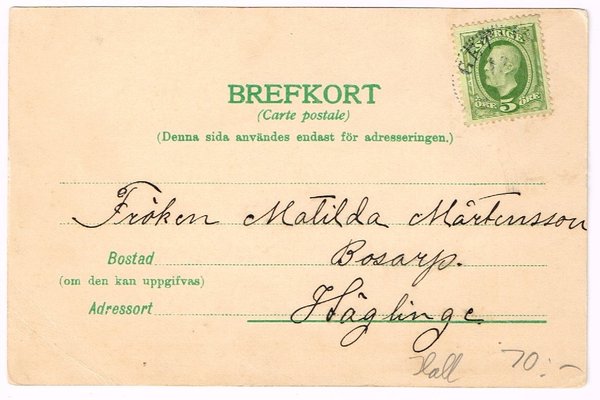 SVERIGE
ÖRE 5 ÖRE
BREFKORT
(Carte postale)
(Denna sida användes endast för adresseringen.)
Fröken Matilda Mårtensson
Bostad Bosarp.
(om den kan uppgifvas)
Adressort Häglinge
Hall 70:-